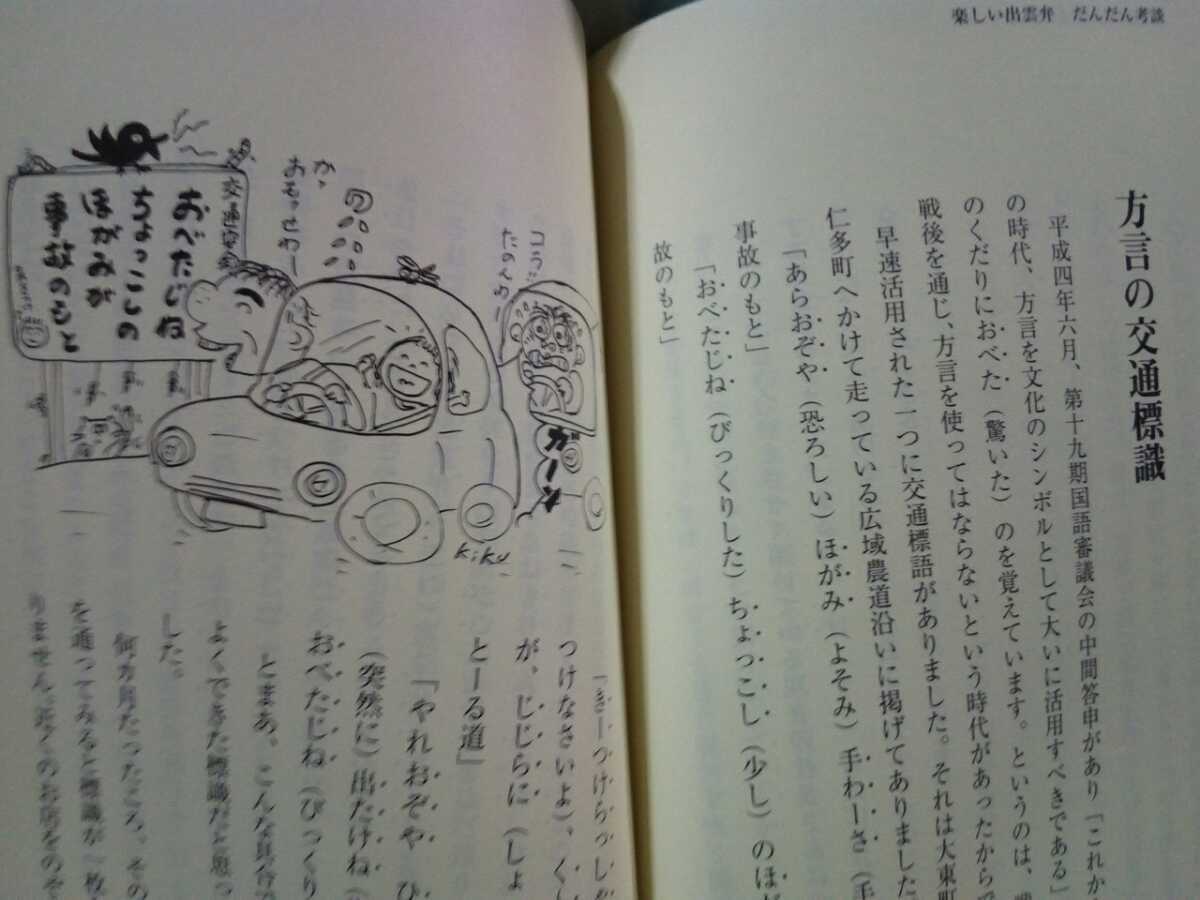 楽しい出雲弁　だんだん考談
方言の交通標識
平成四年六月、第十九期国語審議会の中間答申があり「これか
の時代、方言を文化のシンボルとして大いに活用すべきである」
のくだりにおべた（驚いた）のを覚えています。というのは、
戦後を通じ、方言を使ってはならないという時代があったから
早速活用された一つに交通標語がありました。それは大東町
仁多町へかけて走っている広域農道沿いに掲げてありました
「あらおぞや（恐ろしい）ほがみ（よそみ）手わーさ
事故のもと」
「おべたじね（びっくりした）ちょっこし（少し）のほが
故のもと」
ココラ
たのんわ
か、
おもっせわー
交通安全
おべたじね
ちょっこしの
ほがみが
事故のもと
ガーン
kiku
「きーつけらっしゃ
つけなさいよ）、くし
が、じじらに（しょ
とーる道」
「やれおぞや　ひ
（突然に）出たけね（
おべたじね（びっくり
とまあ、こんな具合
よくできた標識だと思っ
した。
何カ月たったころ、その
を通ってみると標識が一枚
りません。近くのお店をのぞ